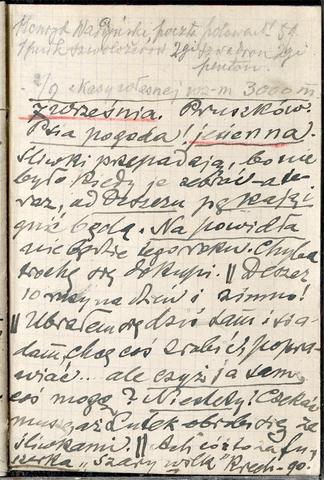 Konrad Waryński, poczta polowa № 59
1 pułk szwoleżerów 2gi szwadron 2gi
pluton.
2/9 z kasy własnej wz-m 3000 m.
7 września. Pruszków.
Psia pogoda! jesienna.
Śliwki przepadają, bo nie
było kiedy je zebrać – a te
raz, od deszczu pękają i
gnić będą. Na powidła
nie będzie tego roku. Chyba
trochę się dokupi. || Deszcz
10 razy na dzień i zimno!
|| Ubrałem się dziś sam i sia
dam, chcę coś zrobić, popra
wiać... ale czyż ja sam
coś mogę? Niestety! Czekać
muszę, aż Lutek obrobi się ze
śliwkami. || Ach cóż to za
"Szary wilk"